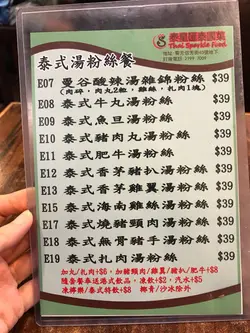 泰星國泰國集
Thai Sparkle Food
泰式湯粉絲餐
E07 曼谷酸辣湯雜錦粉絲 $39
(肉碎,肉丸2粒,雞絲,扎肉1塊)
E08 泰式牛丸湯粉絲 $39
E09 泰式魚旦湯粉絲 $39
E10 泰式豬肉丸湯粉絲 $39
E11 泰式肥牛湯粉絲 $39
E12 泰式香茅豬扒湯粉絲 $39
E13 泰式香茅雞翼湯粉絲 $39
E15 泰式海南雞絲湯粉絲 $39
E17 泰式燒豬頸肉湯粉絲 $39
E18 泰式無骨豬手湯粉絲 $39
E19 泰式扎肉湯粉絲 $39
加丸/扎肉+$6, 加豬頸肉/雞翼/豬扒/肥牛+$8
隨金餐奉送港式熱飲, 凍飲+$2, 汽水+$5
凍檸樂/泰式特飲+$8 椰青/沙冰除外